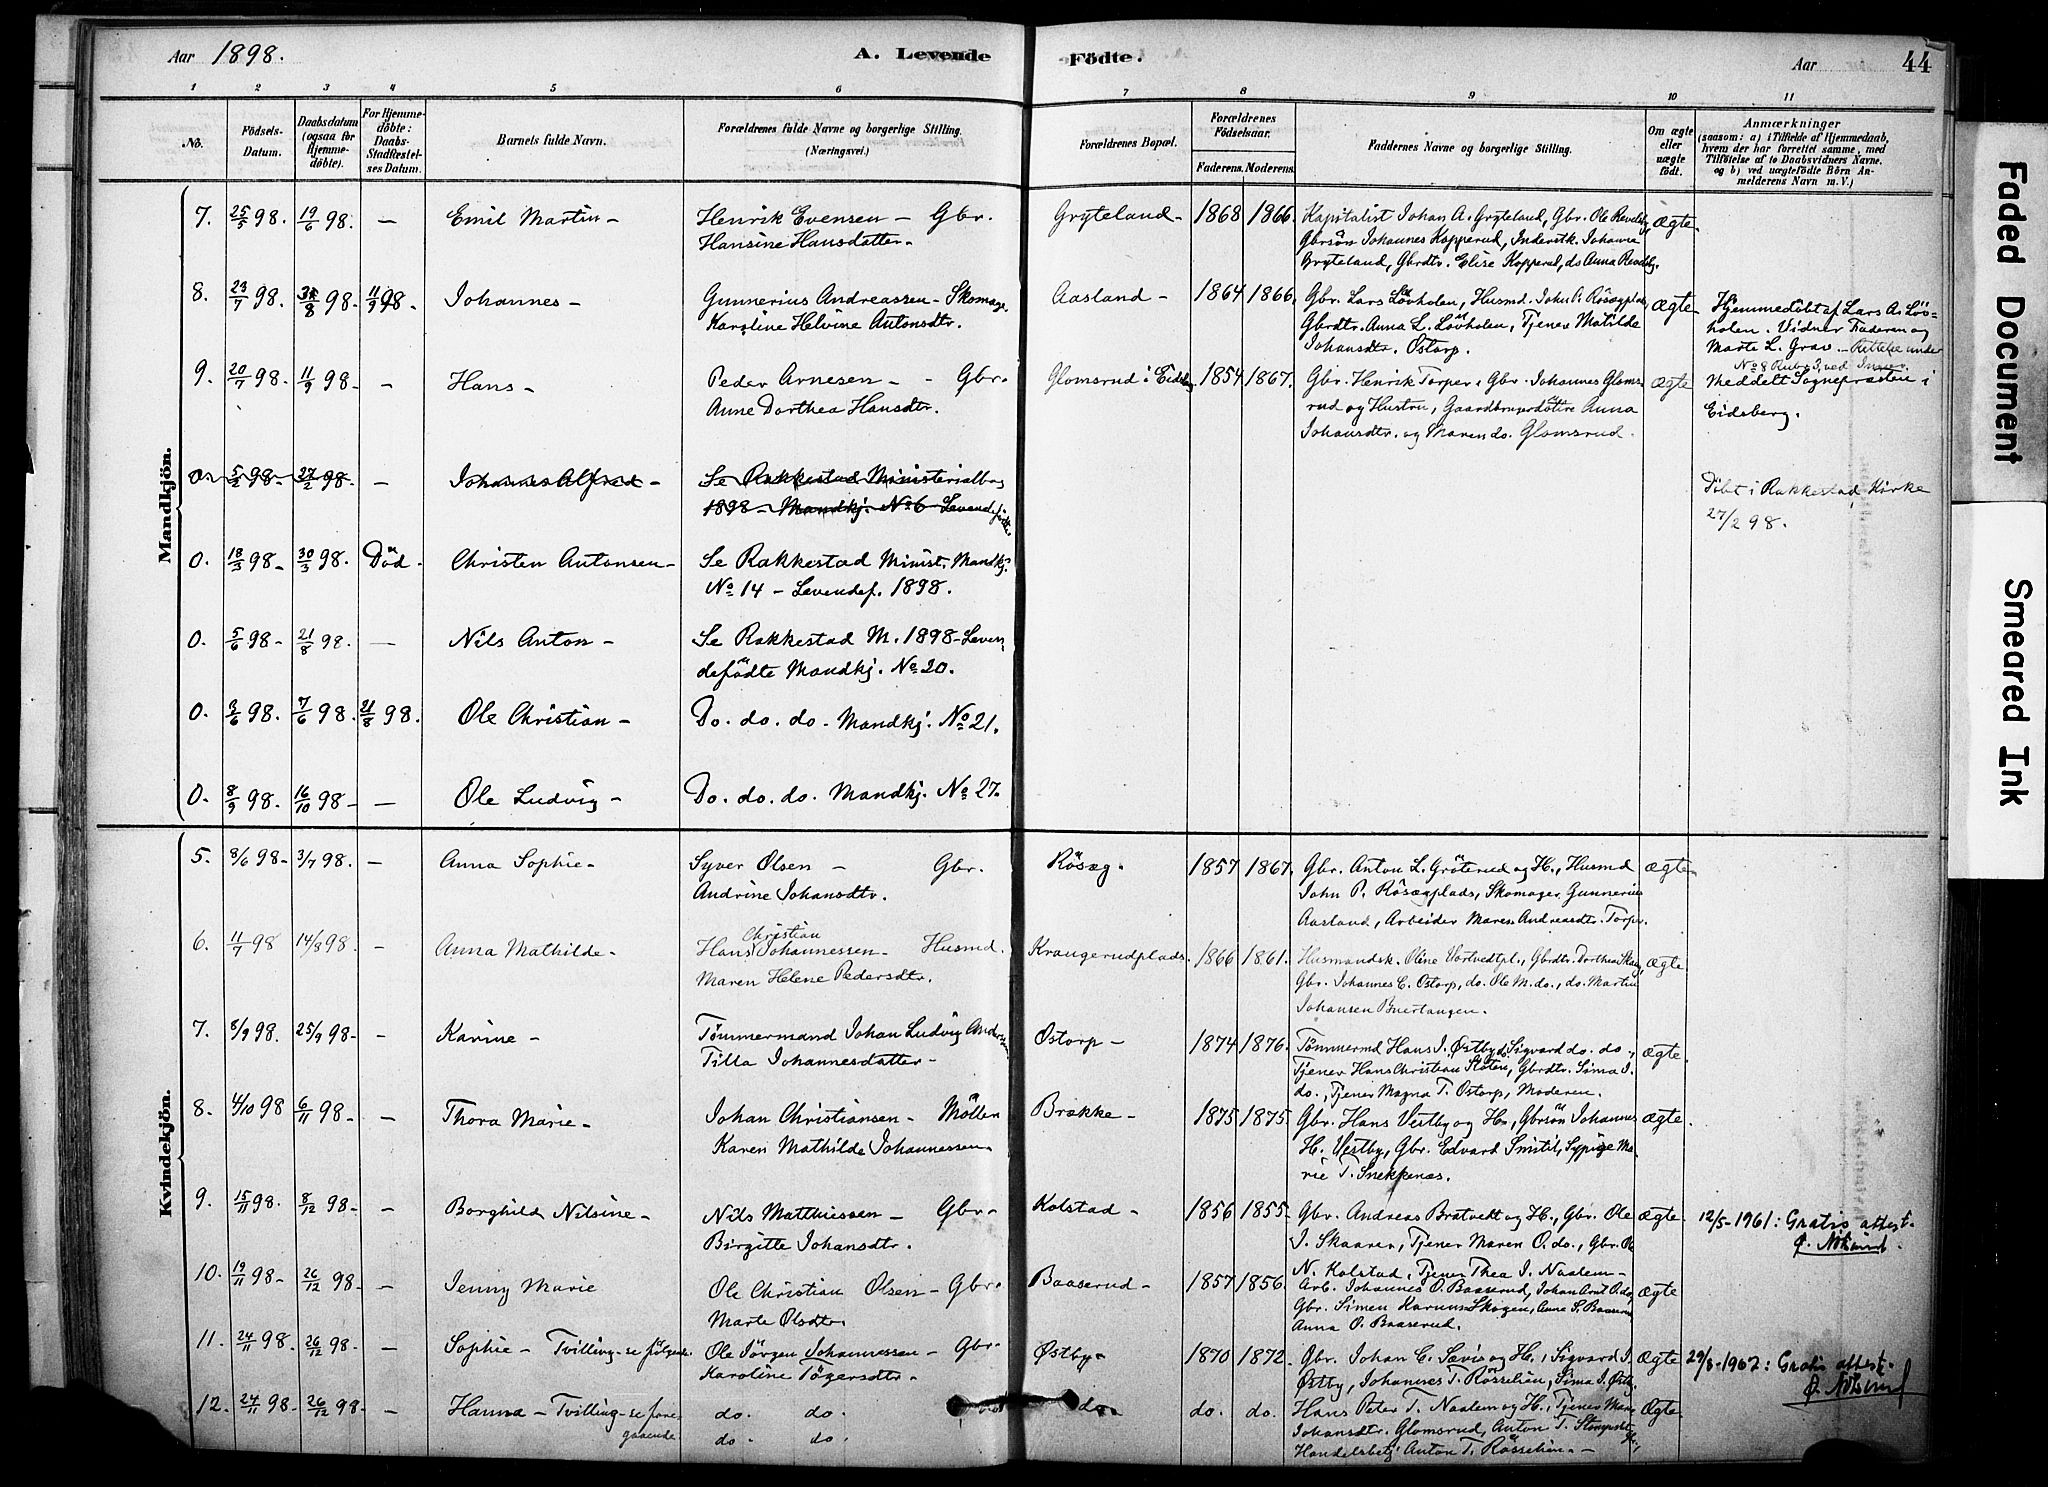 Aar 1898. A. Levende Födte. Aar 44
1 2 3 4 5 6 7 8 9 10 11
No. Födsels-Datum. Daabsdatum (ogsaa for Hjemmedöbte). For Hjemmedöbte: Daabs-Stadfæstelses Datum. Barnets fulde Navn. Forældrenes fulde Navne og borgerlige Stilling. (Næringsvei.) Forældrenes Bopæl. Forældrenes Födselsaar. Faderens. Moderens. Faddernes Navne og borgerlige Stilling. Om ægte eller uægte födt. Anmærkninger (saasom: a) i Tilfælde af Hjemmedaab, hvem der har forrettet samme, med Tilföielse af to Daabsvidners Navne, og b) ved uægtefödte Börn Anmelderens Navn m. V.)
Mandkjön.
7. 25/5 98. 19/6 98. — Emil Martin — Henrik Evensen — Gbr. Gryteland — 1868 1866. Kapitalist Johan A. Gryteland, Gbr. Ole Ægte.
Hansine Hansdatter. Gbrsön Johannes Kopperud, Inderstk. Johanne
Gryteland, Gbrdtr. Elise Kopperud, do Anna
8. 23/7 98. 98. 11/9 98. Johannes — Gunnerius Andreassen — Skomag. Aasland — 1864 1866. Gbr. Lars Lövholen, Husmd. John P. Rösægplads, Ægte Hjemmedöbt af Lars A. Löv-
Karoline Helvine Antonsdtr. Gbrdtr. Anna L. Lövholen, Tjener Matilde holen. Vidner Faderen og
Johansdtr. Ostorp. Marte L. Grav. — Rettelse under
No 8 Rubr 3, ved
9. 20/7 98. 11/9 98. — Hans — Peder Arnesen — Gbr. Glomsrud i Eidsbg. 1854 1867. Gbr. Henrik Torper, Gbr. Johannes Gloms- Ægte Meddelt Sognepræsten i
Anne Dorthea Hansdtr. rud og Hustru, Gaardbrugerdötre Anna Eidsberg.
Johansdtr. og Maren do. Glomsrud.
0. 5/2 98 — 27/2 98 — Johannes Alfred — Se Rakkestad Ministerialbog Döbt i Rakkestad Kirke
1898 — Mandkj. No 6 Levendefödte. 27/2 98.
0. 18/3 98 — 30/3 98. Död. Christen Antonsen — Se Rakkestad Minist. Mandkj.
No 14 — Levendef. 1898.
0. 5/6 98 — 21/8 98. — Nils Anton — Se Rakkestad M. 1898 — Leven
defödte Mandkj. No 20.
0. 3/6 98. 7/6 98. 21/8 98. Ole Christian — Do. do. do. Mandkj. No 21.
0. 8/9 98. 16/10 98 — — Ole Ludvig — Do. do. do. Mandkj. No 27.
Kvindekjön.
5. 8/6 98 — 3/7 98. — Anna Sophie — Syver Olsen — Gbr. Rösæg. 1857 1867. Gbr. Anton L. Gröterud og H., Husmd Ægte
Andrine Johansdtr. John P. Rösægplads, Skomager Gunnerius
Aasland, Arbeider Maren Andreasdtr. Torper.
6. 11/7 98 14/8 98. — Anna Mathilde — Hans Christian Johannessen — Husmd. Krangerudplads. 1866 1861. Husmandsk. Oline Vortvedtpl., Gbrdtr. Dorthea Skaug, Ægte
Maren Helene Pedersdtr. Gbr. Johannes C. Ostorp, do. Ole M. do., do. Martin
Johansen Buertangen.
7. 8/9 98. 25/9 98 — — Karine — Tömmermand Johan Ludvig Andersen Ostorp — 1874 1876. Tömmermd Hans J. Østby, Sigvard do. do., Ægte.
Tilla Johannesdatter — Tjener Hans Christian Sloten, Gbrdtr. Sima J.
do., Tjener Magna T. Ostorp, Moderen.
8. 4/10 98 6/11 98. — Thora Marie — Johan Christiansen — Möller Brække — 1875 1875. Gbr. Hans Vestby og H., Gbrsön Johannes Ægte.
Karen Mathilde Johannessen H. Vestby, Gbr. Edvard Smitil, Sypige Ma-
rie T. Snekkenæs.
9. 15/11 98. 8/12 98 — — Borghild Nilsine — Nils Matthiessen — Gbr. Kolstad — 1856 1855. Gbr. Andreas Bratvett og H., Gbr. Ole Ægte. 12/5-1961: Gratis attest.
Birgitte Johansdtr. J. Skaaren, Tjener Maren O. do., Gbr. Ole
N. Kolstad, Tjener Thea J. Naalem —
10. 19/11 98 — 26/12 98 — Jenny Marie Ole Christian Olsen — Gbr. Baaserud — 1857 1856. Arb. Johannes O. Baaserud, Johan Arnt O. do, Ægte
Marte Olsdtr. Gbr. Simen Skogen, Anne S. Baaserud
Anna O. Baaserud.
11. 24/11 98. 26/12 98. — Sophie — Tvilling — se fölgende. Ole Jörgen Johannessen — Gbr. Østby — 1870 1872. Gbr. Johan C. Sævis og H., Sigvard J. Ægte 29/8-1962: Gratis attest.
Karoline Tögersdtr. Østby, Johannes T. Rösselien, Sima J. Østby.
12. 24/11 98 — 26/12 98 — — Hanna — Tvilling — se fore- do. do. do. do. do. Hans Peter T. Naalem og H., Tjener Maren Ægte.
gaaende. do. do. Johansdtr. Glomsrud, Anton T.
Handelsbetj. Anton T. Rösselien. —
Faded Document
Smeared Ink